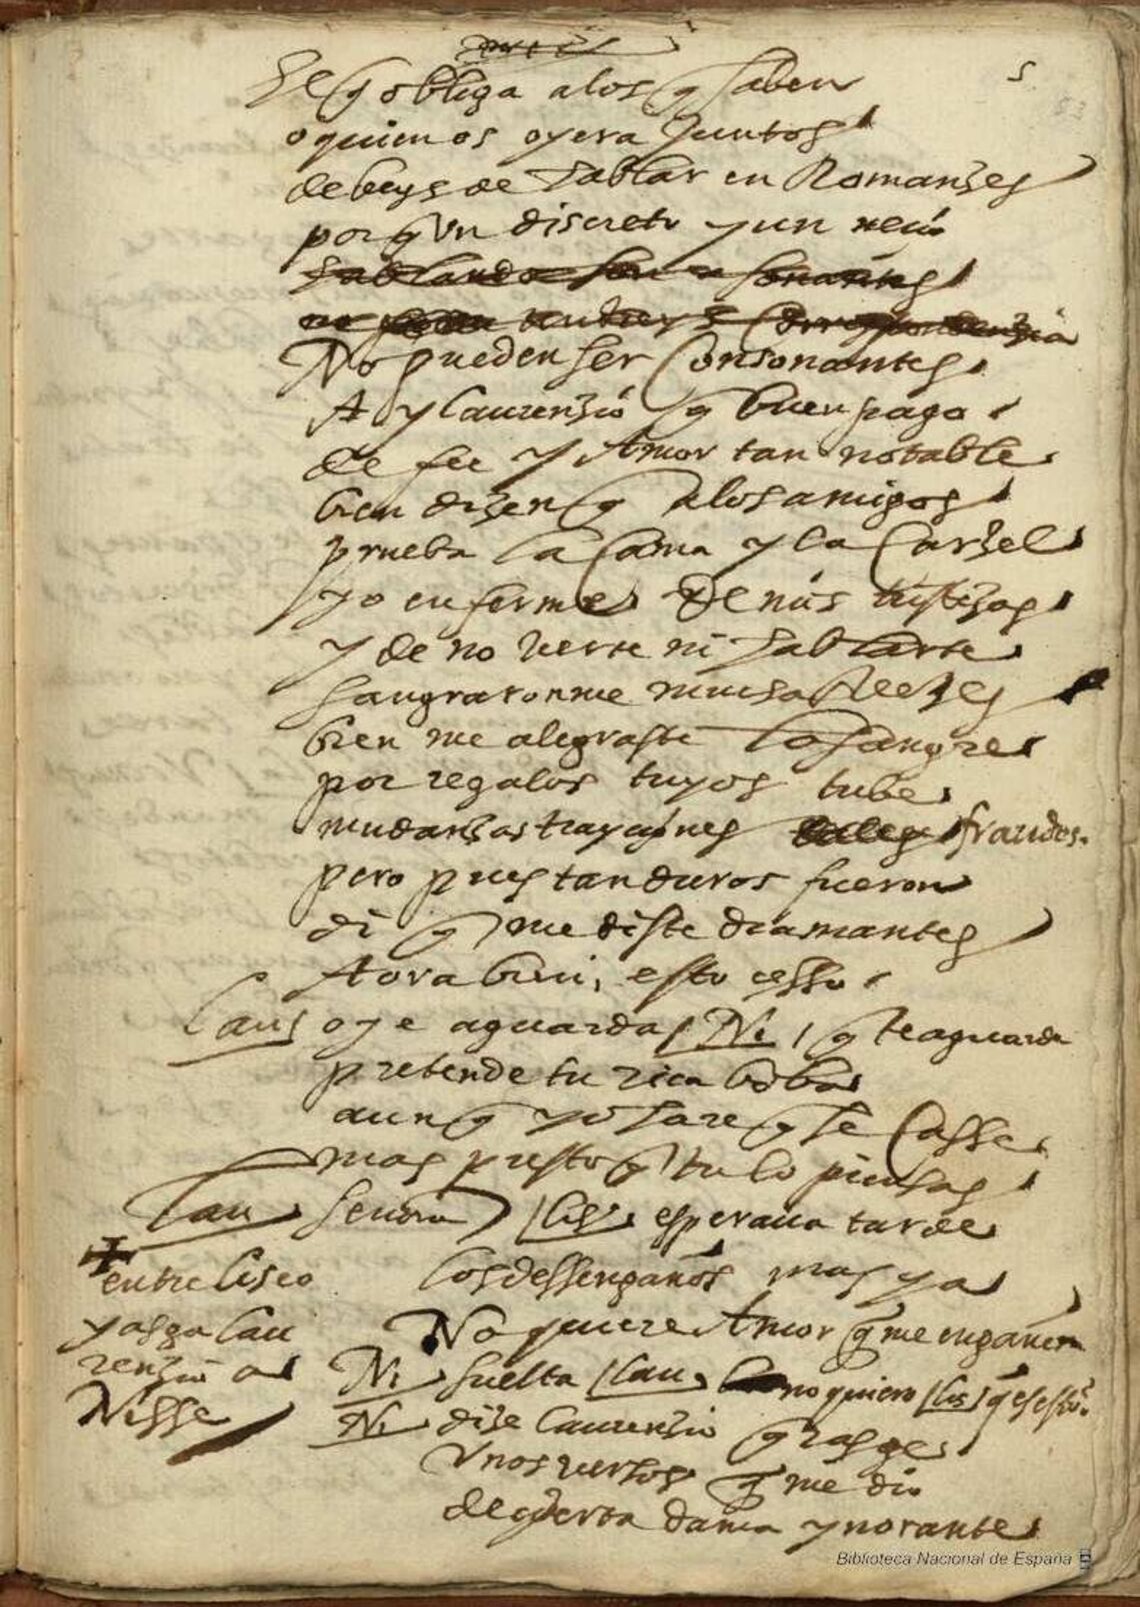 5
53
El q obliga a los q saben
o quien os oyera juntos
debeys de hablar en Romanzes
porq Vn discreto y un neçio
hablando son asonantes
no tendreys correspondenzia
No pueden ser Consonantes
Ay laurenzio q buen pago
de fee y Amor tan notable
bien dizen q a los amigos
prueba la Cama y la Carzel
yo enferme De mis tristezas
y de no verte ni hablarte
sangraronme muchas Vezes
bien me alegraste la sangre
por regalos tuyos tube
mudanzas trayçiones fraudes.
pero pues tan duros fueron
di q me diste diamantes
Aora bien, esto cesso
Lau oye aguarda Ni q te aguarde
pretende tu rica boba
aunq yo hare q se Casse
mas presto q tu lo piensas
Lau señora Lis esperaua tarde
los dessengaños mas ya
No quiere Amor q me engañen
Ni suelta Lau no quiero Lis q es esto.
Ni dize laurenzio q rasge
Vnos versos q me dio
de çierta dama ynorante
entre liseo
y asga lau
renzio a
Nisse
Biblioteca Nacional de España